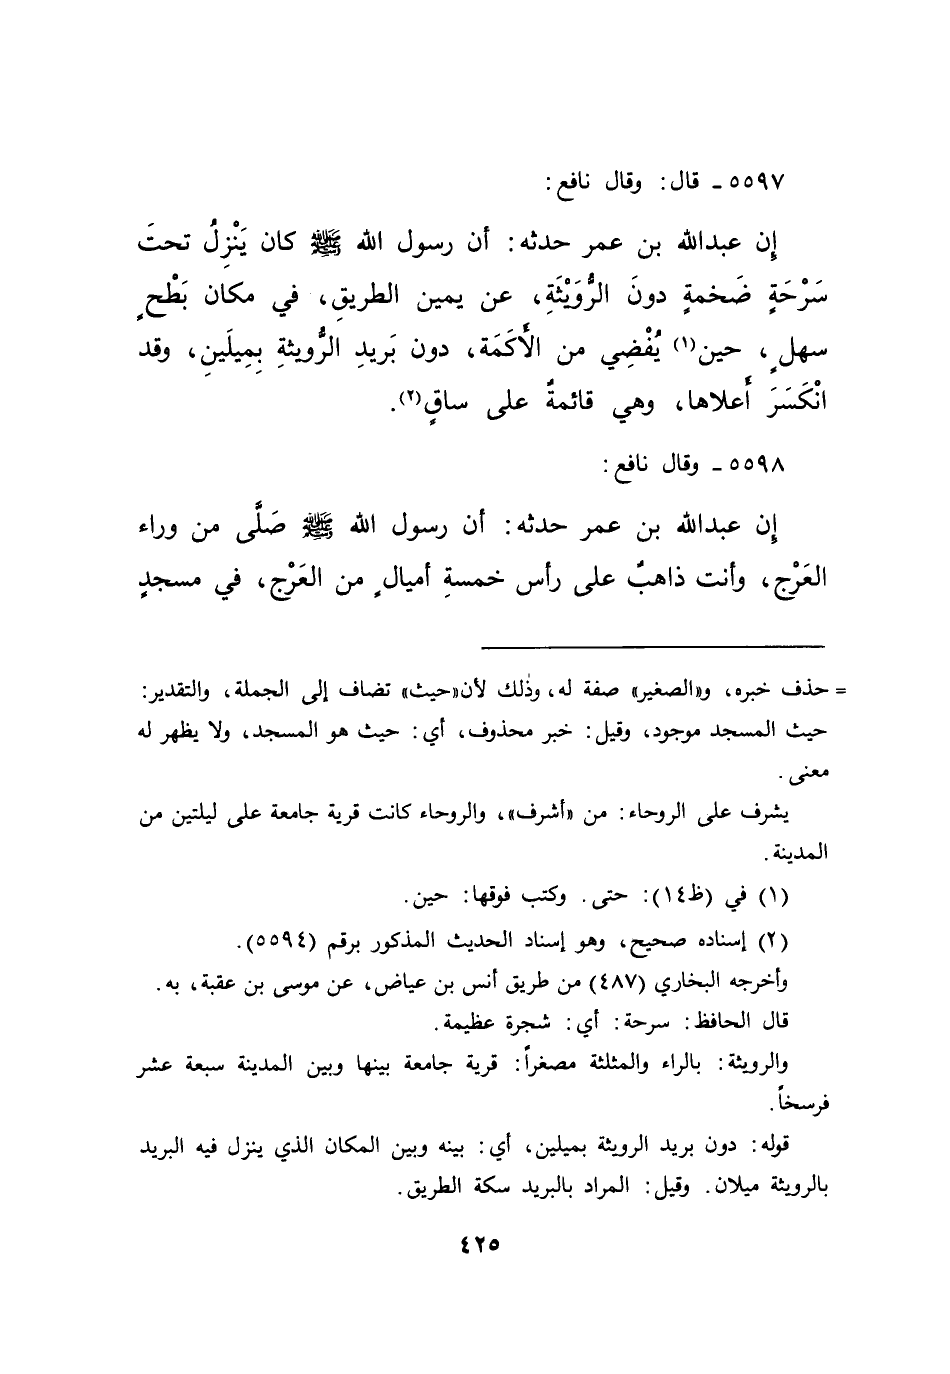 ٥٥٩٧ ـ قال: وقال نافع:
إِن عبدالله بن عمر حدثه: أن رسول الله ﷺ كان يَنْزِلُ تحتَ
سَرْحَةٍ ضَخمةٍ دونَ الرُّوَيْثَةِ، عن يمين الطريقِ، في مكان بَطْحٍ
سهلٍ، حين(١) يُفْضِي من الأَكَمَة، دون بَريدِ الرُّويثةِ بِمِيلَينِ، وقد
انْكَسَرَ أَعلاها، وهي قائمةٌ على ساقٍ(٢).
٥٥٩٨ ـ وقال نافع:
إِن عبدالله بن عمر حدثه: أن رسول الله ﷺ صَلَّى من وراء
العَرْج، وأنت ذاهبٌ على رأس خمسةِ أميالٍ من العَرْج، في مسجدٍ
= حذف خبره، و«الصغير» صفة له، وذٰلك لأن«حيث» تضاف إلى الجملة، والتقدير:
حيث المسجد موجود، وقيل: خبر محذوف، أي: حيث هو المسجد، ولا يظهر له
معنى.
يشرف على الروحاء: من «أشرف»، والروحاء كانت قرية جامعة على ليلتين من
المدينة.
(١) في (ظ١٤): حتى. وكتب فوقها: حين.
(٢) إسناده صحيح، وهو إسناد الحديث المذكور برقم (٥٥٩٤).
وأخرجه البخاري (٤٨٧) من طريق أنس بن عياض، عن موسى بن عقبة، به.
قال الحافظ: سرحة: أي: شجرة عظيمة.
والرويثة: بالراء والمثلثة مصغراً: قرية جامعة بينها وبين المدينة سبعة عشر
فرسخاً.
قوله: دون بريد الرويثة بميلين، أي: بينه وبين المكان الذي ينزل فيه البريد
بالرويثة ميلان. وقيل: المراد بالبريد سكة الطريق.
٤٢٥